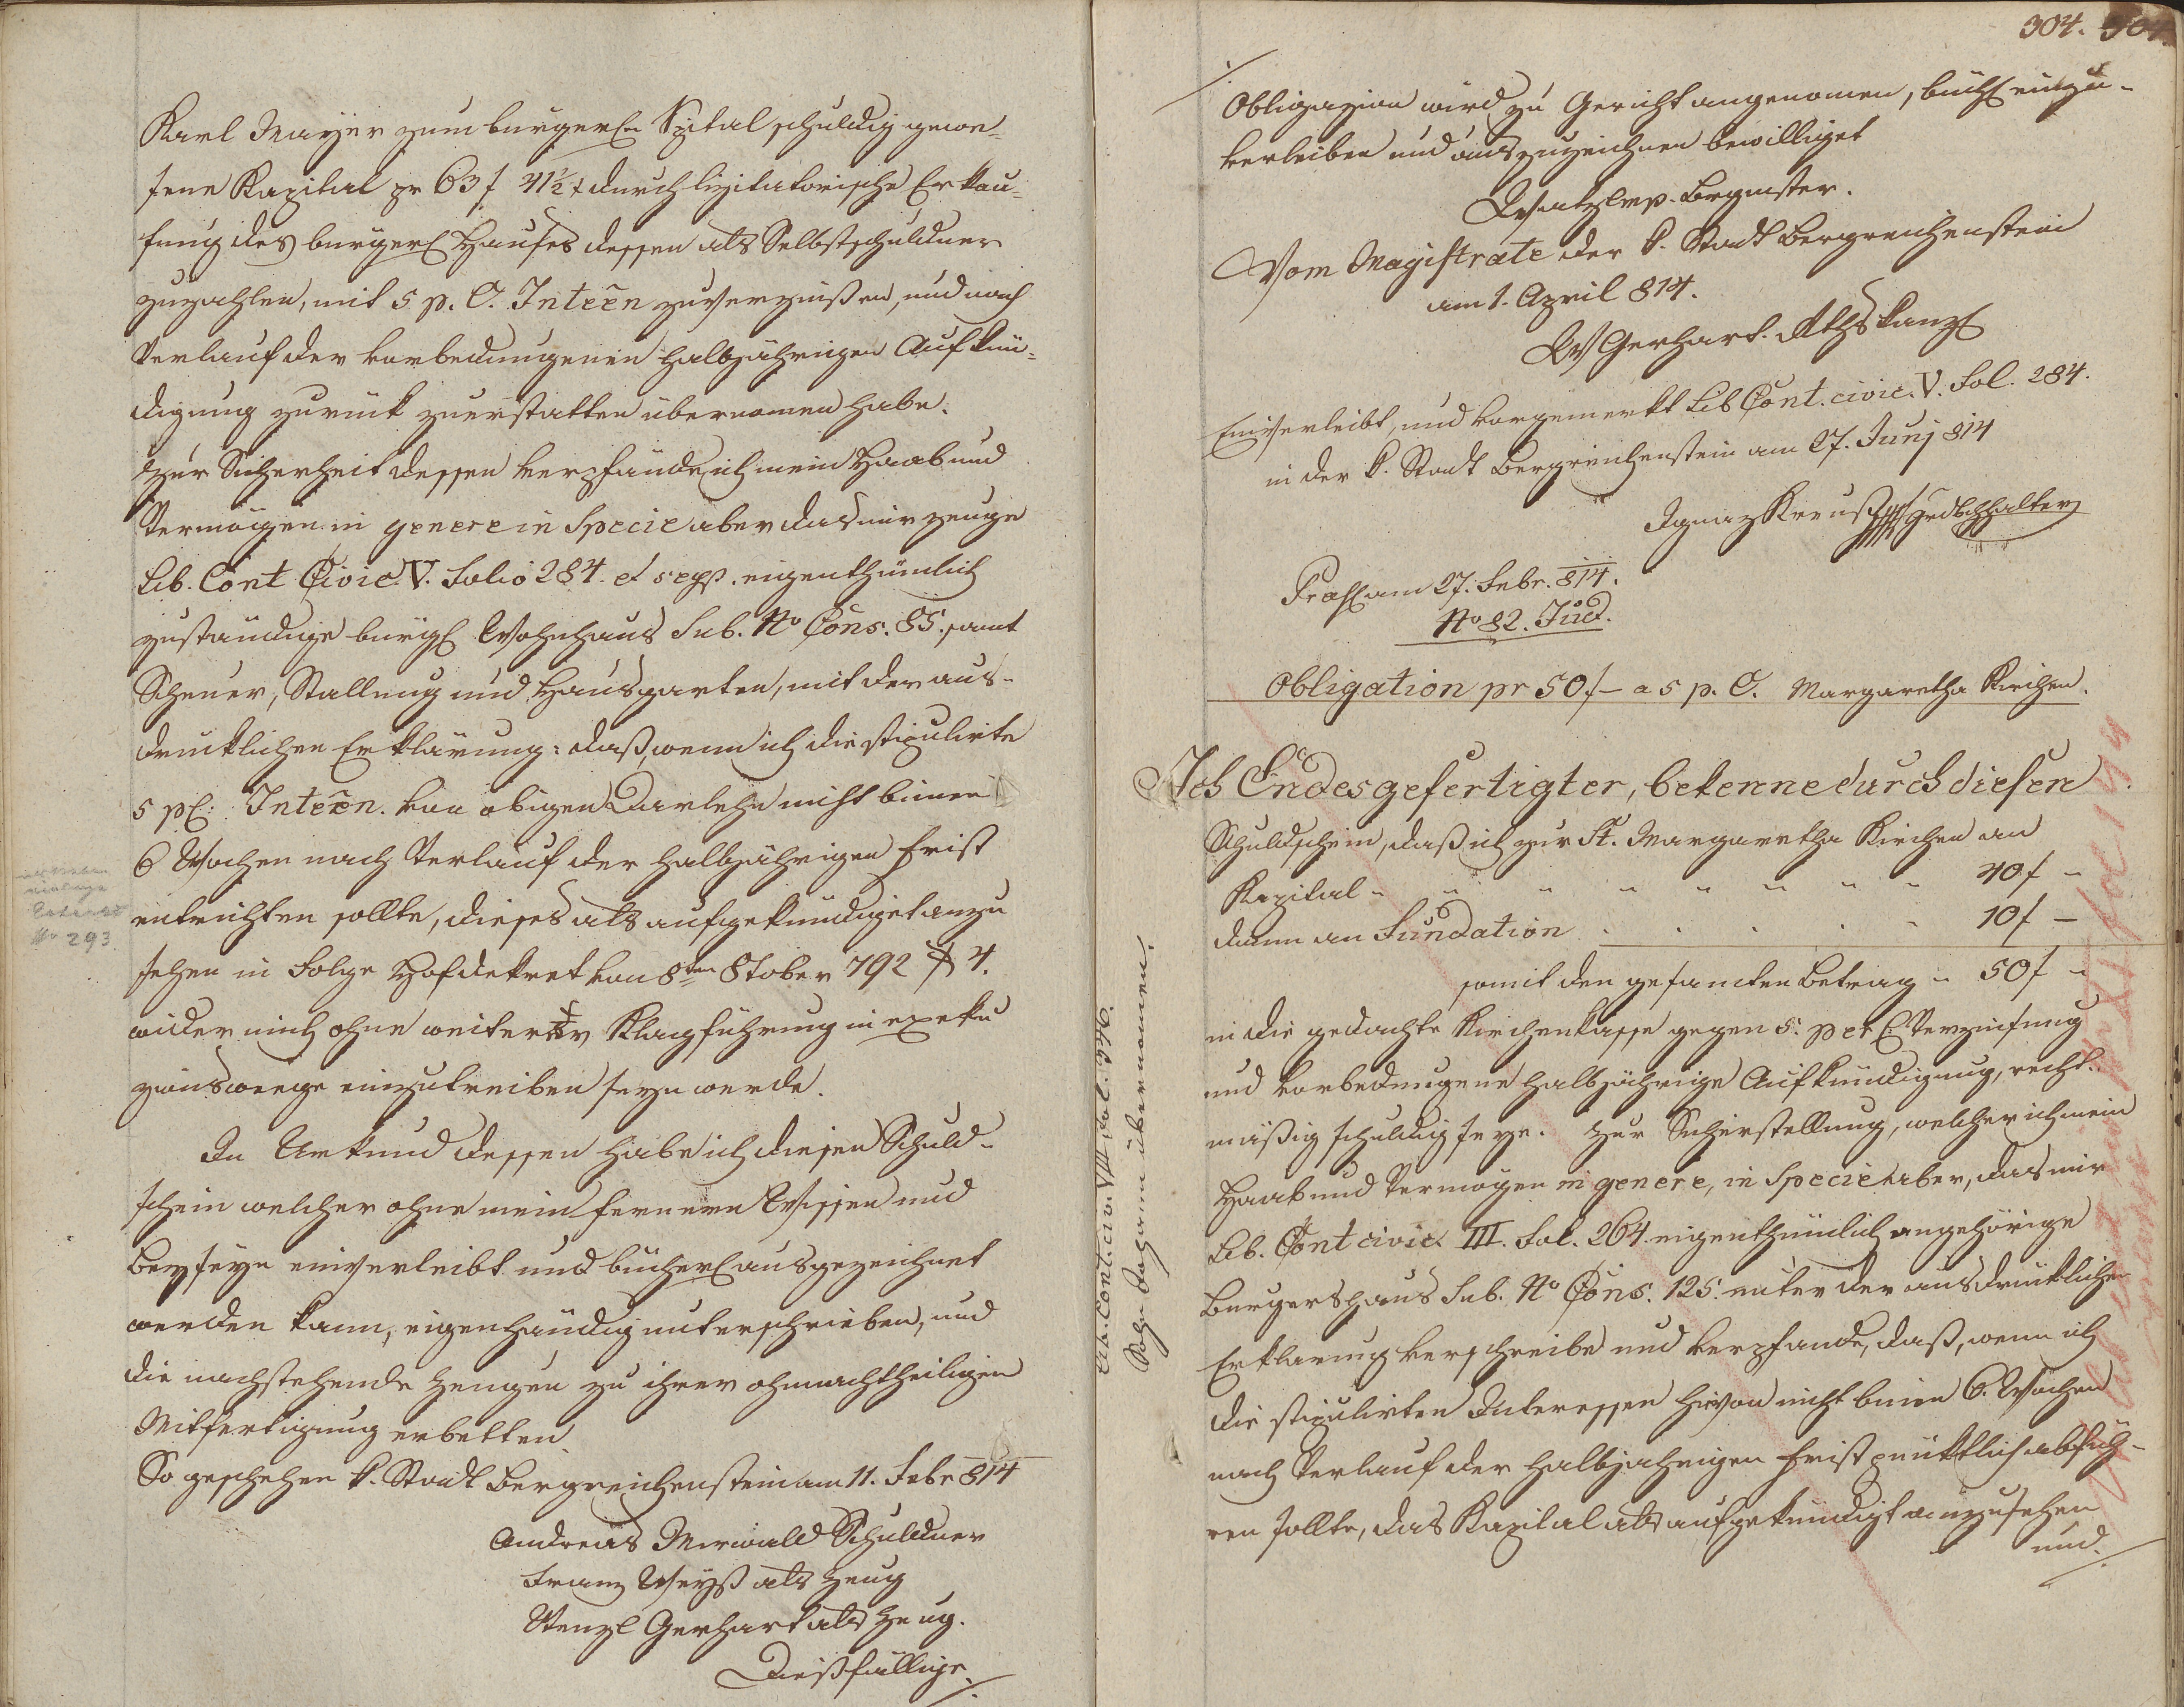 Karl Mayer zum burgerln Spital schuldig gewe-
sene Kapital pr 63 f 41½ x durch lizitatorische Erkau-
fung des burgerl Hauses dessen als Selbstschuldner
zuzahlen, mit 5 p. C. Inteen zuverzinßen, und nach
Verlauf der vorbedungenen halbjährigen Aufkün-
digung zuruk zuerstatten übernomen habe.
Zur Sicherheit dessen verpfände ich mein Haab und
Vermögen in genere in Specie aber das mir zeuge
Lib. Cont Civic. V. Folio 284. et seqs. eigenthümlich
zuständige burgl Wohnhaus Sub. No Cons. 85. samt
Scheuer, Stallung und Hausgarten, mit der aus-
drucklichen Erklärung: daß, wenn ich die stipulirte
5 pC: Inteen. von obigen Darlehn nicht binnen
6 Wochen nach Verlauf der halbjährigen Frist
entrichten sollte, dieses als aufgekündiget anzu
sehen in Folge Hofdekret von 8ten 8tober 792 § 4.
wider mich ohne weiterer Klagführung in exeku
zionswege einzutreiben seyn werde.
In Urkund dessen habe ich diesen Schuld-
schein welcher ohne mein fernern Wissen und
Beyseyn einverleibt und bücherl ausgezeichnet
werden kann, eigenhändig unterschrieben, und
die nachstehende Zeugen zu ihrer ohnnachtheiligen
Mitfertigung erbetten.
So geschehen k. Stadt Bergreichenstein am 11. Febr 814
Andreas Merwald Schuldner
Franz Weyß als Zeug
Wenzl Gerhart als Zeug.
Dießfällige
No 293
304.
Obligazion wird zu Gericht angenomen, büchl einzu-
verleiben und auszuzeichnen bewilliget
mp. Bürgmster.
Vom Magistrate der k. Stadt Bergreichenstein
am 1. April 814.
W Gerhart. Rthskanzl
Einverleibt, und vorgemerkt Lib Cont. civic. V. Fol. 284.
in der k. Stadt Bergreichenstein am 27. Junj 814
Ignaz Kreuß Grdbchhalter
Praes am 27. Febr. 814.
No 82. Jud.
Obligation pr 50 f – a 5 p. C. Margaretha Kirchen.
Ich Endesgefertigter, bekenne durch diesen
Schuldschein, daß ich zur St. Margaretha Kirchen an
Kapital 40 f –
dann an Fundation 10 f –
somit den gesamten Betrag 50 f
in die gedachte Kirchenkasse gegen 5. per C. Verzinsung
und vorbedungene halbjährige Aufkündigung, recht-
mäßig schuldig seye. Zur Sicherstellung, welcher ich mein
Haab und Vermögen in genere, in Specie aber, das mir
Lib. Cont civic. III. Fol. 264. eigenthümlich angehörige
Burgershaus Sub. No Cons. 125. unter der ausdrüklichen
Erklärung verschreibe und verpfände, daß, wenn ich
die stipulirten Interessen hievon nicht binnen 6. Wochen
nach Verlauf der halbjährigen Frist pünktlich abfüh-
ren sollte, das Kapital als aufgekündigt anzusehen
und
Lib. Cont. civ. VII. Fol. 
Sohn Johann übernomen.